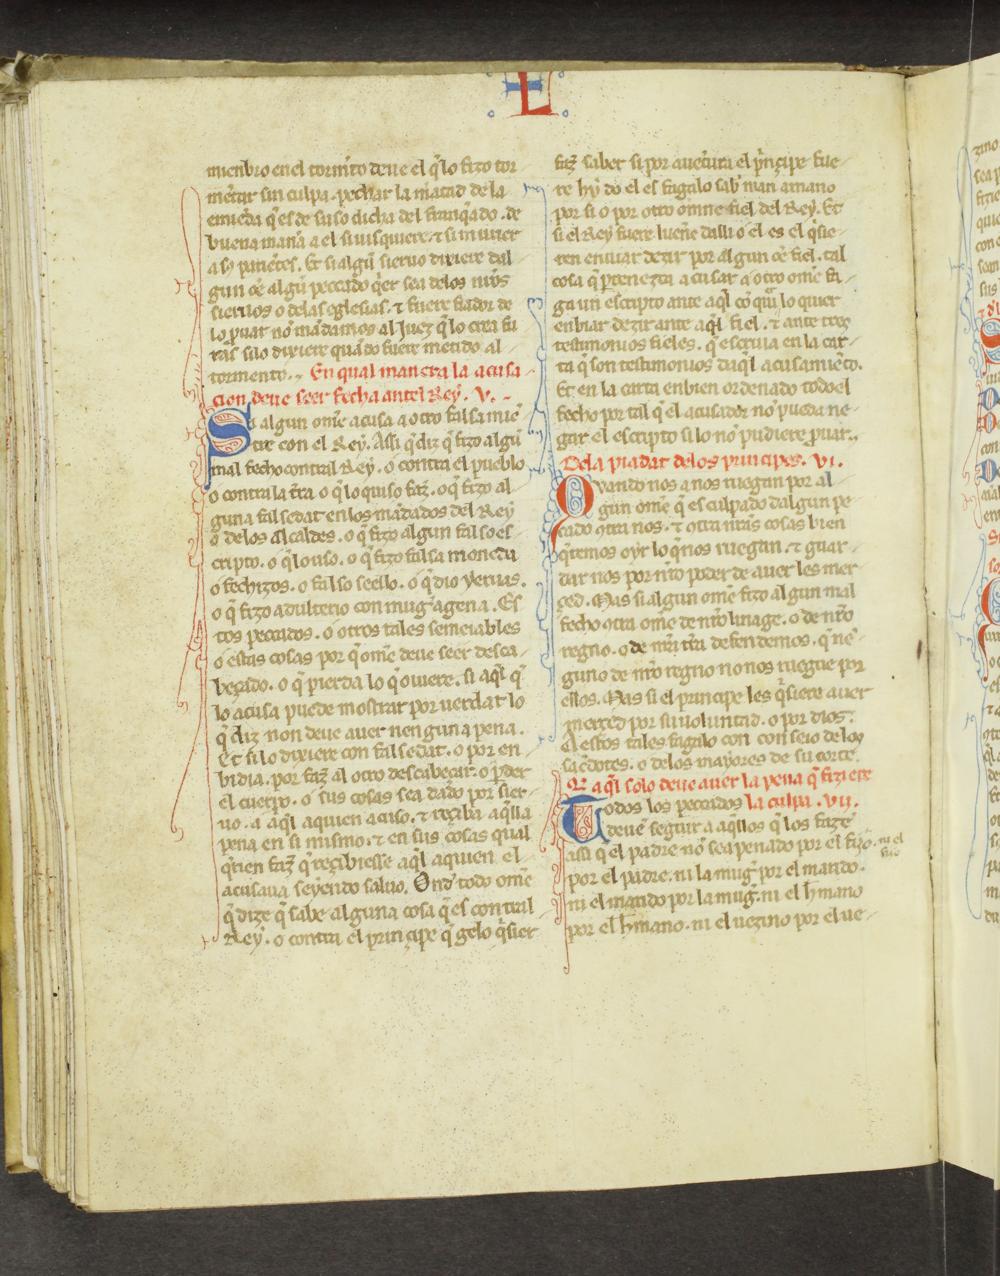 L
mienbro en el tormẽto deue el q̃ lo fizo tor
mẽtar sin culpa. pechar la meatad de la
emiẽda q̃ es de suso dicha del franq̃ado. de
buena maña a el si uisquiere. ⁊ si murier
a sꝯ pariẽtes. Et si algũ sieruo dixiere dal
gun oẽ algũ peccado q̃er sea de los nr̃os
sieruos o delas eglesias. ⁊ fuere fiador de
lo ꝓuar no mãdamos al Juez q̃ lo crea fu
ras si lo dixiere quãdo fuere metido al
tormento. En qual manera la acusa
cion deue seer fecha antel Rey. V.
Si algun om̃e acusa a otro falsa miẽ
tre con el Rey. Assi q̃ diz q̃ fizo algũ
mal fecho contral Rey. o contra el pueblo
o contra la tr̃ra o q̃ lo quiso faz̃. o q̃ fizo al
guna falsedat en los mãdados del Rey
o de los Alcaldes. o q̃ fizo algun falso es
cripto. o q̃ lo uso. o q̃ fizo falsa moneda
o fechizos. o falso seello. o q̃ dio yeruas.
o q̃ fizo adulterio con mug̃ agena. Es
tos peccados. o otros tales semeiables
o estas cosas por q̃ om̃e deue seer desca
beçado. o q̃ pierda lo q̃ ouiere. si aq̃l q̃
lo acusa puede mostrar por uerdat lo
q̃ diz non deue auer nenguna pena.
Et si lo dixiere con falsedat. o por en
bidia. por faz̃ al otro descabeçar. o ꝑder
el cuerpo. o sus cosas sea dado por sier
uo. a aq̃l aquien acuso. ⁊ reçiba aq̃lla
pena en si mismo. ⁊ en sus cosas qual
q̃rien faz̃ q̃ reçibiesse aq̃l aquien el
acusaua seyendo saluo. Ond todo om̃e
q̃ dize q̃ sabe alguna cosa q̃ es contral
Rey. o contra el prinçipe q̃ gelo q̃sier
faz̃ saber si por auẽtura el pⁱnçipe fue
re hy do el es fagalo sab̃ man a mano
por si o por otro omne fiel del Rey. Et
si el Rey fuere lueñe dalli o el es el q̃sie
ren enuiar dezir por algun oẽ fiel. tal
cosa q̃ ꝑtenezca a cusar a otro om̃e fa
ga un escripto ante aq̃l cõ quiẽ lo quier
enbiar dezir ante aq̃l fiel. ⁊ ante tres
testimonios fieles. q̃ escriua en la car
ta q̃ son testimonios daq̃l acusamiẽto.
Et en la carta en bien ordenado todo el
fecho por tal q̃ el acusador no pueda ne
gar el escripto si lo no pudiere ꝓuar.
Dela piadat delos principes. vi.
Quando nos a nos ruegan por al
gun om̃e q̃ es culpado dalgun pe
cado ꝯtra nos. ⁊ ꝯtra nr̃as cosas bien
q̃remos oyr lo q̃ nos ruegan. ⁊ guar
dar nos por nr̃o poder de auer les mer
ced. Mas si algun om̃e fizo algun mal
fecho ꝯtra om̃e de nr̃o linage. o de nr̃o
regno. o de nr̃a tr̃ra defendemos. q̃ ne
guno de nr̃o regno no nos ruegue por
ellos. Mas si el principe les q̃siere auer
merçed por su uoluntad. o por dios.
A estos tales fagalo con conseio de los
saçdotes. o delos mayores de su corte.
Q̃ aq̃l solo deue auer la pena q̃ fiziere
Todos los peccados la culpa. vii.
deuẽ seguir a aq̃llos q̃ los fazẽ
assi q̃ el padre no sea penado por el fijo. ni el fiio
por el padre. ni la mug̃ por el marido.
ni el marido por la mug̃. ni el hmano
por el hmano. ni el uezino por el ue